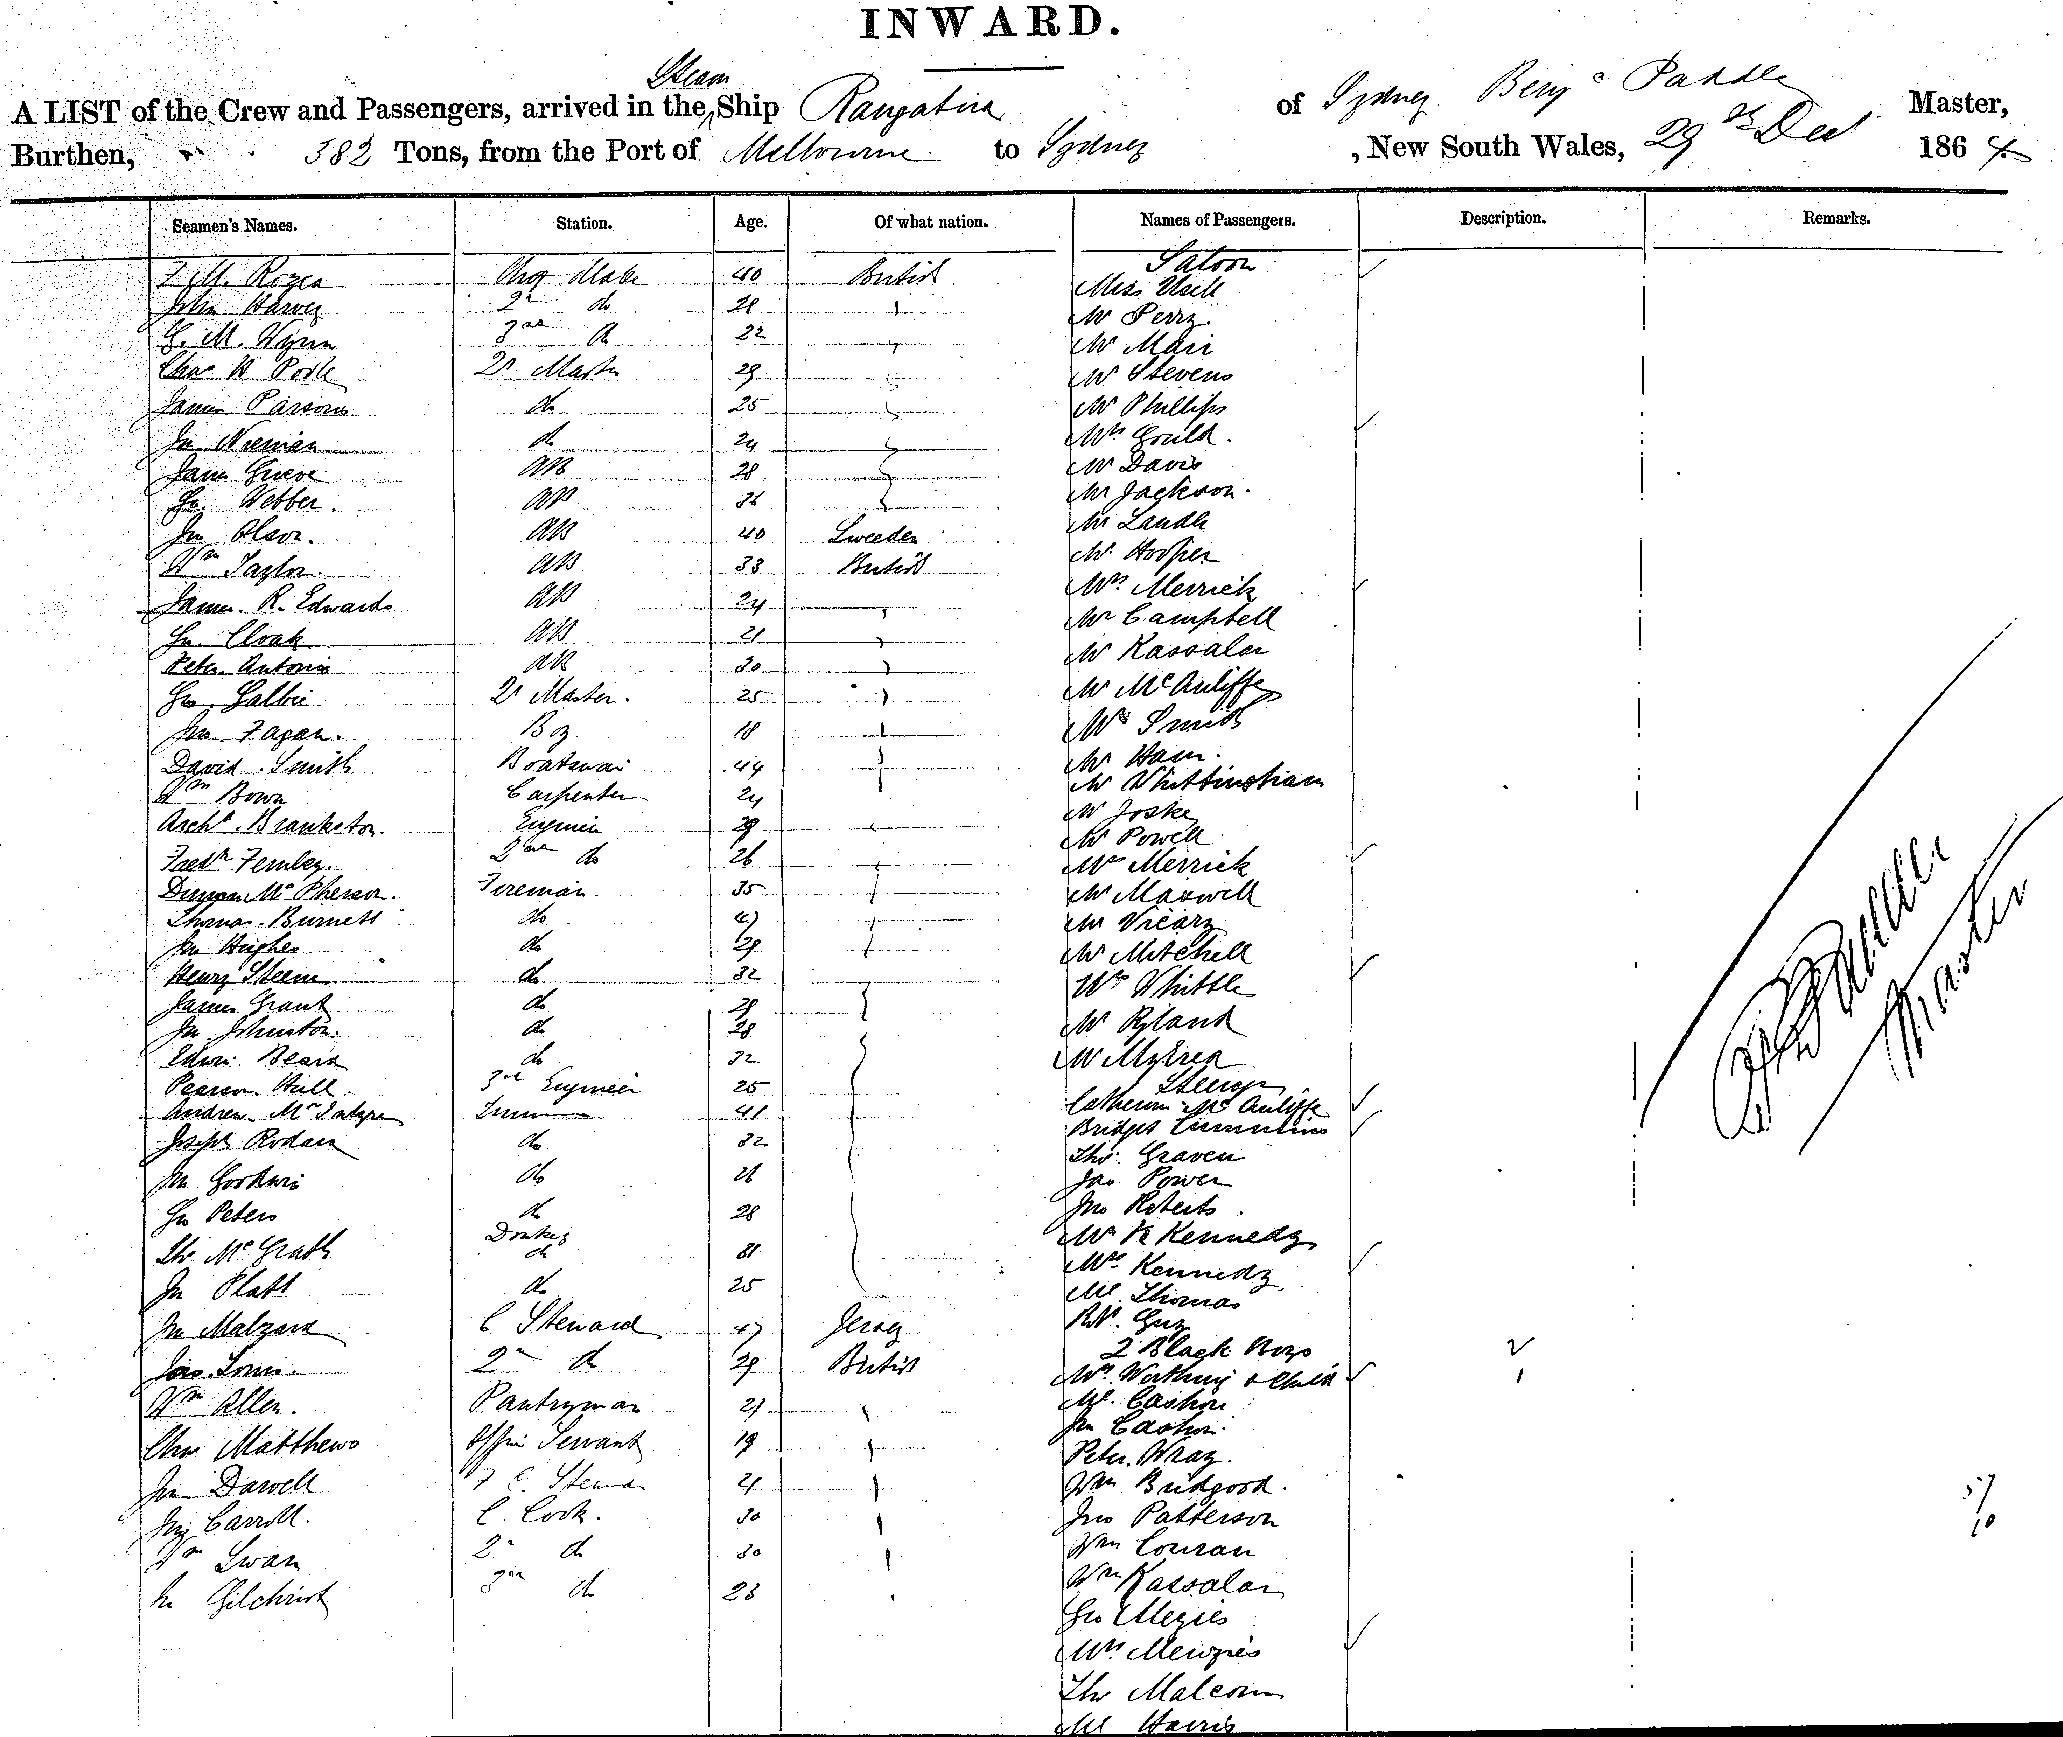 INWARD.
A LIST of the Crew and Passengers, arrived in the Steam Ship Rangatira of Sydney Benj Paddle Master,
Burthen, 382 Tons, from the Port of Melbourne to Sydney , New South Wales, 29th Dec 1864
Seamen's Names. Station. Age. Of what nation. Names of Passengers. Description. Remarks.
Saloon
Chf Mate 40 British Miss
John Harvey 2n do Mr Perry
G. M. Wynn 3rd do 22 Mr Mair
Chas H Qr Master 29 Mr Stevens
James Parsons do 25 Mr Phillips
Jn do 24 Mrs Gould.
James Grieve AB 28 Mr Davis
Webber. AB Mr Jackson.
Jn Olson. AB 40 Sweeden Mr
Wm Taylor. AB 33 British Mr Hooper
James. R. Edwards AB 24 Mrs Merrick
Cloak AB 21 Mr Campbell
Peter Antonio AB 30 Mr Kassalar
Qr Master. 25 Mr McAuliffe
Jno Fagan. Boy 18 Mrs Smith
David Smith Boatswain 44 Mr Ham.
Wm Bown Carpenter 24 Mr Whittingham
Archd. Brankston Engineer 29 Mr Joske
Mr Powell
Fredk Fernley. 2nd do 26 Mrs Merrick
Duncan McPherson. Fireman 35 Mr Maxwell
Thomas Burnett do 47 Mr Vicary
Jn Hughes do 29 Mr Mitchell
Henry Steem do 32 Mrs Whittle
James Grant do 29
Jn Johnston. do 28 Mr Ryland
Edwin Beard do 32 Mr Myrea
Hull. 3rd Engineer 25 Steerage
Andrew McIntyre 41 Catherine McAuliffe
Joseph do 32 Bridget Cummins
Thos. Graven
Jn Goodwin do Jas Power
Peters do 28 Jno Roberts.
Thos McGrath Donkey do 31 Mr R Kennedy
Mrs Kennedy
Jn Platt do 25 Ml Thomas
Jn Malzard C Steward 47 Jersey Rt. Guy
2 Black Boys 2
2n do 29 British Mrs & Child 1
Wm Allen. Pantryman 21 Ml. Cashin
Jn Cashin.
Chas Matthews Servant 19 Peter Wray.
Jn Darvell 21 Wm Bridgood. 57
Carroll. C. Cook. 30 Jno Patterson 10
Wm Swan 2n do 30 Wm Conran
Jn Gilchrist 3rd do 23 Wm Kassalar
Geo Mezies
Mrs Menzies
Thos Malcom
Ml Harris
Master